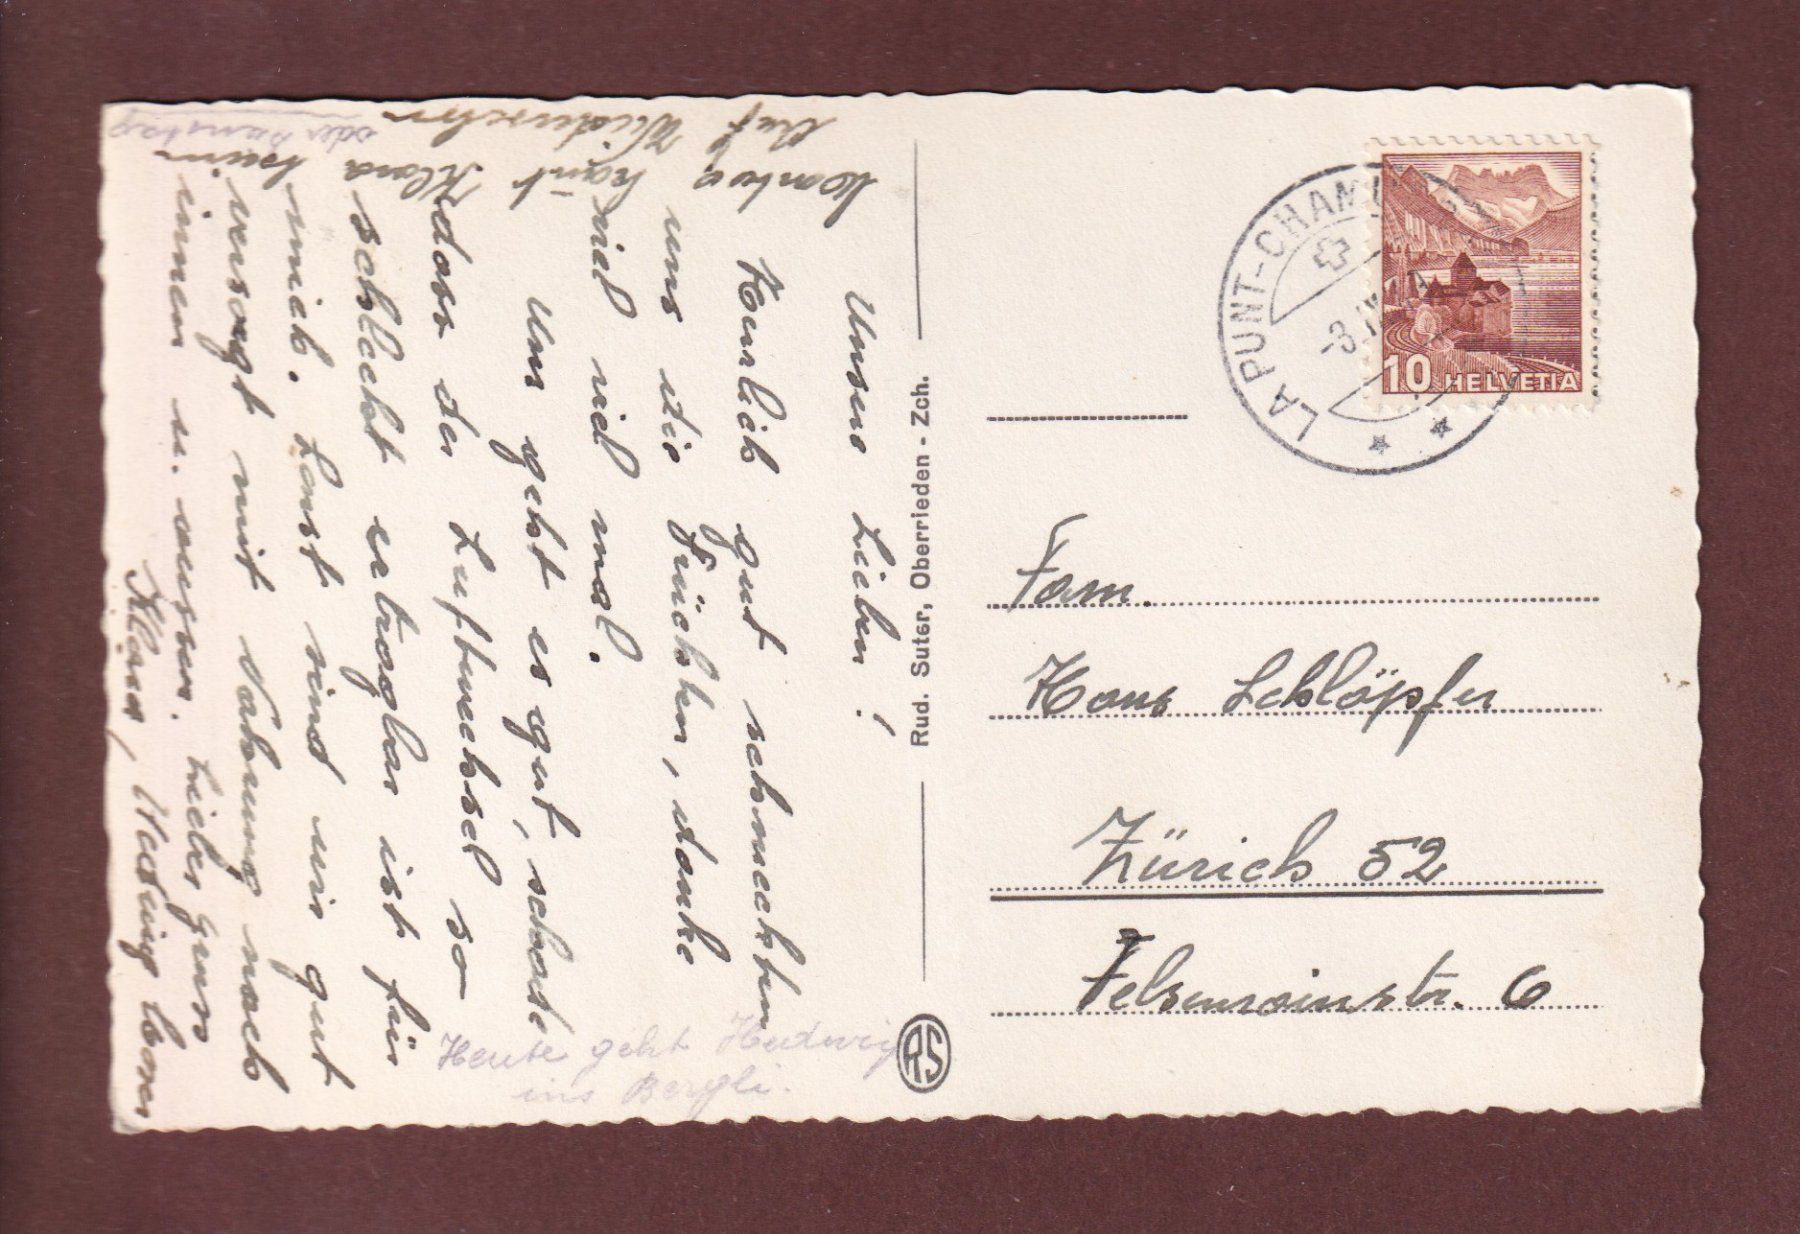 Unsere Lieben!
Herrlich gut schmeckten
uns die Früchten, danke
viel viel mal.
Uns geht es gut, schade
dass der Luftwechsel so
schlecht ertragbar ist für
mich. Sonst sind wir gut
versorgt mit Nahrung nach
innen u. aussen. Liebe
Klara, Hedwig
oder Samstag
Heute geht Hedwig
ins Bergli.
Rud. Suter, Oberrieden - Zch.
RS
LA PUNT-CHAMUES
-3. IX
10 HELVETIA
Fam.
Hans Schläpfer
Zürich 52
Felsenrainstr. 6